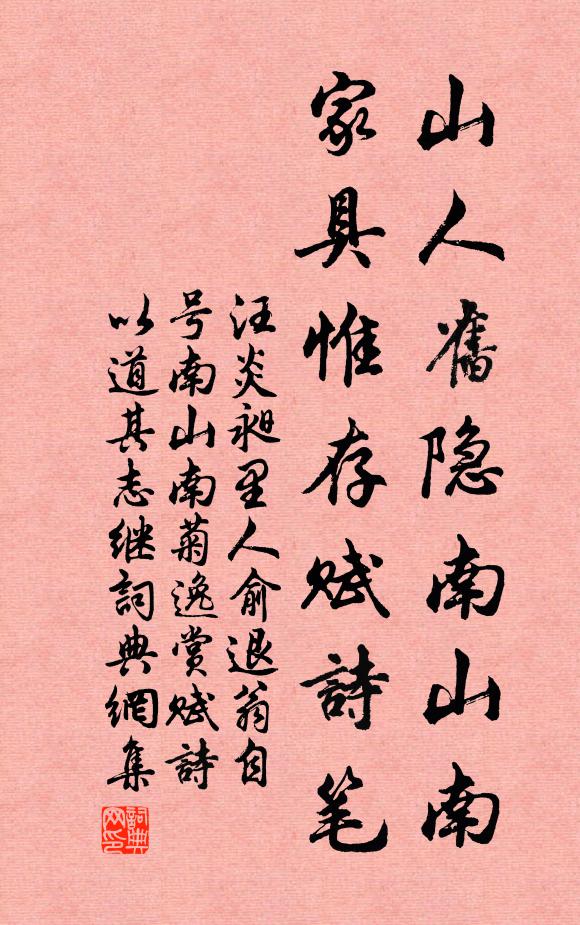 山人舊隐南山南
家具惟存赋詩笔
汪炎昶里人俞退翁自
号南山南菊逸赏赋詩
以道其志继詞典網集
詞典网印